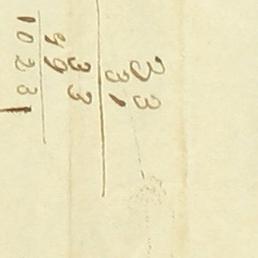 33
31
33
99
1023